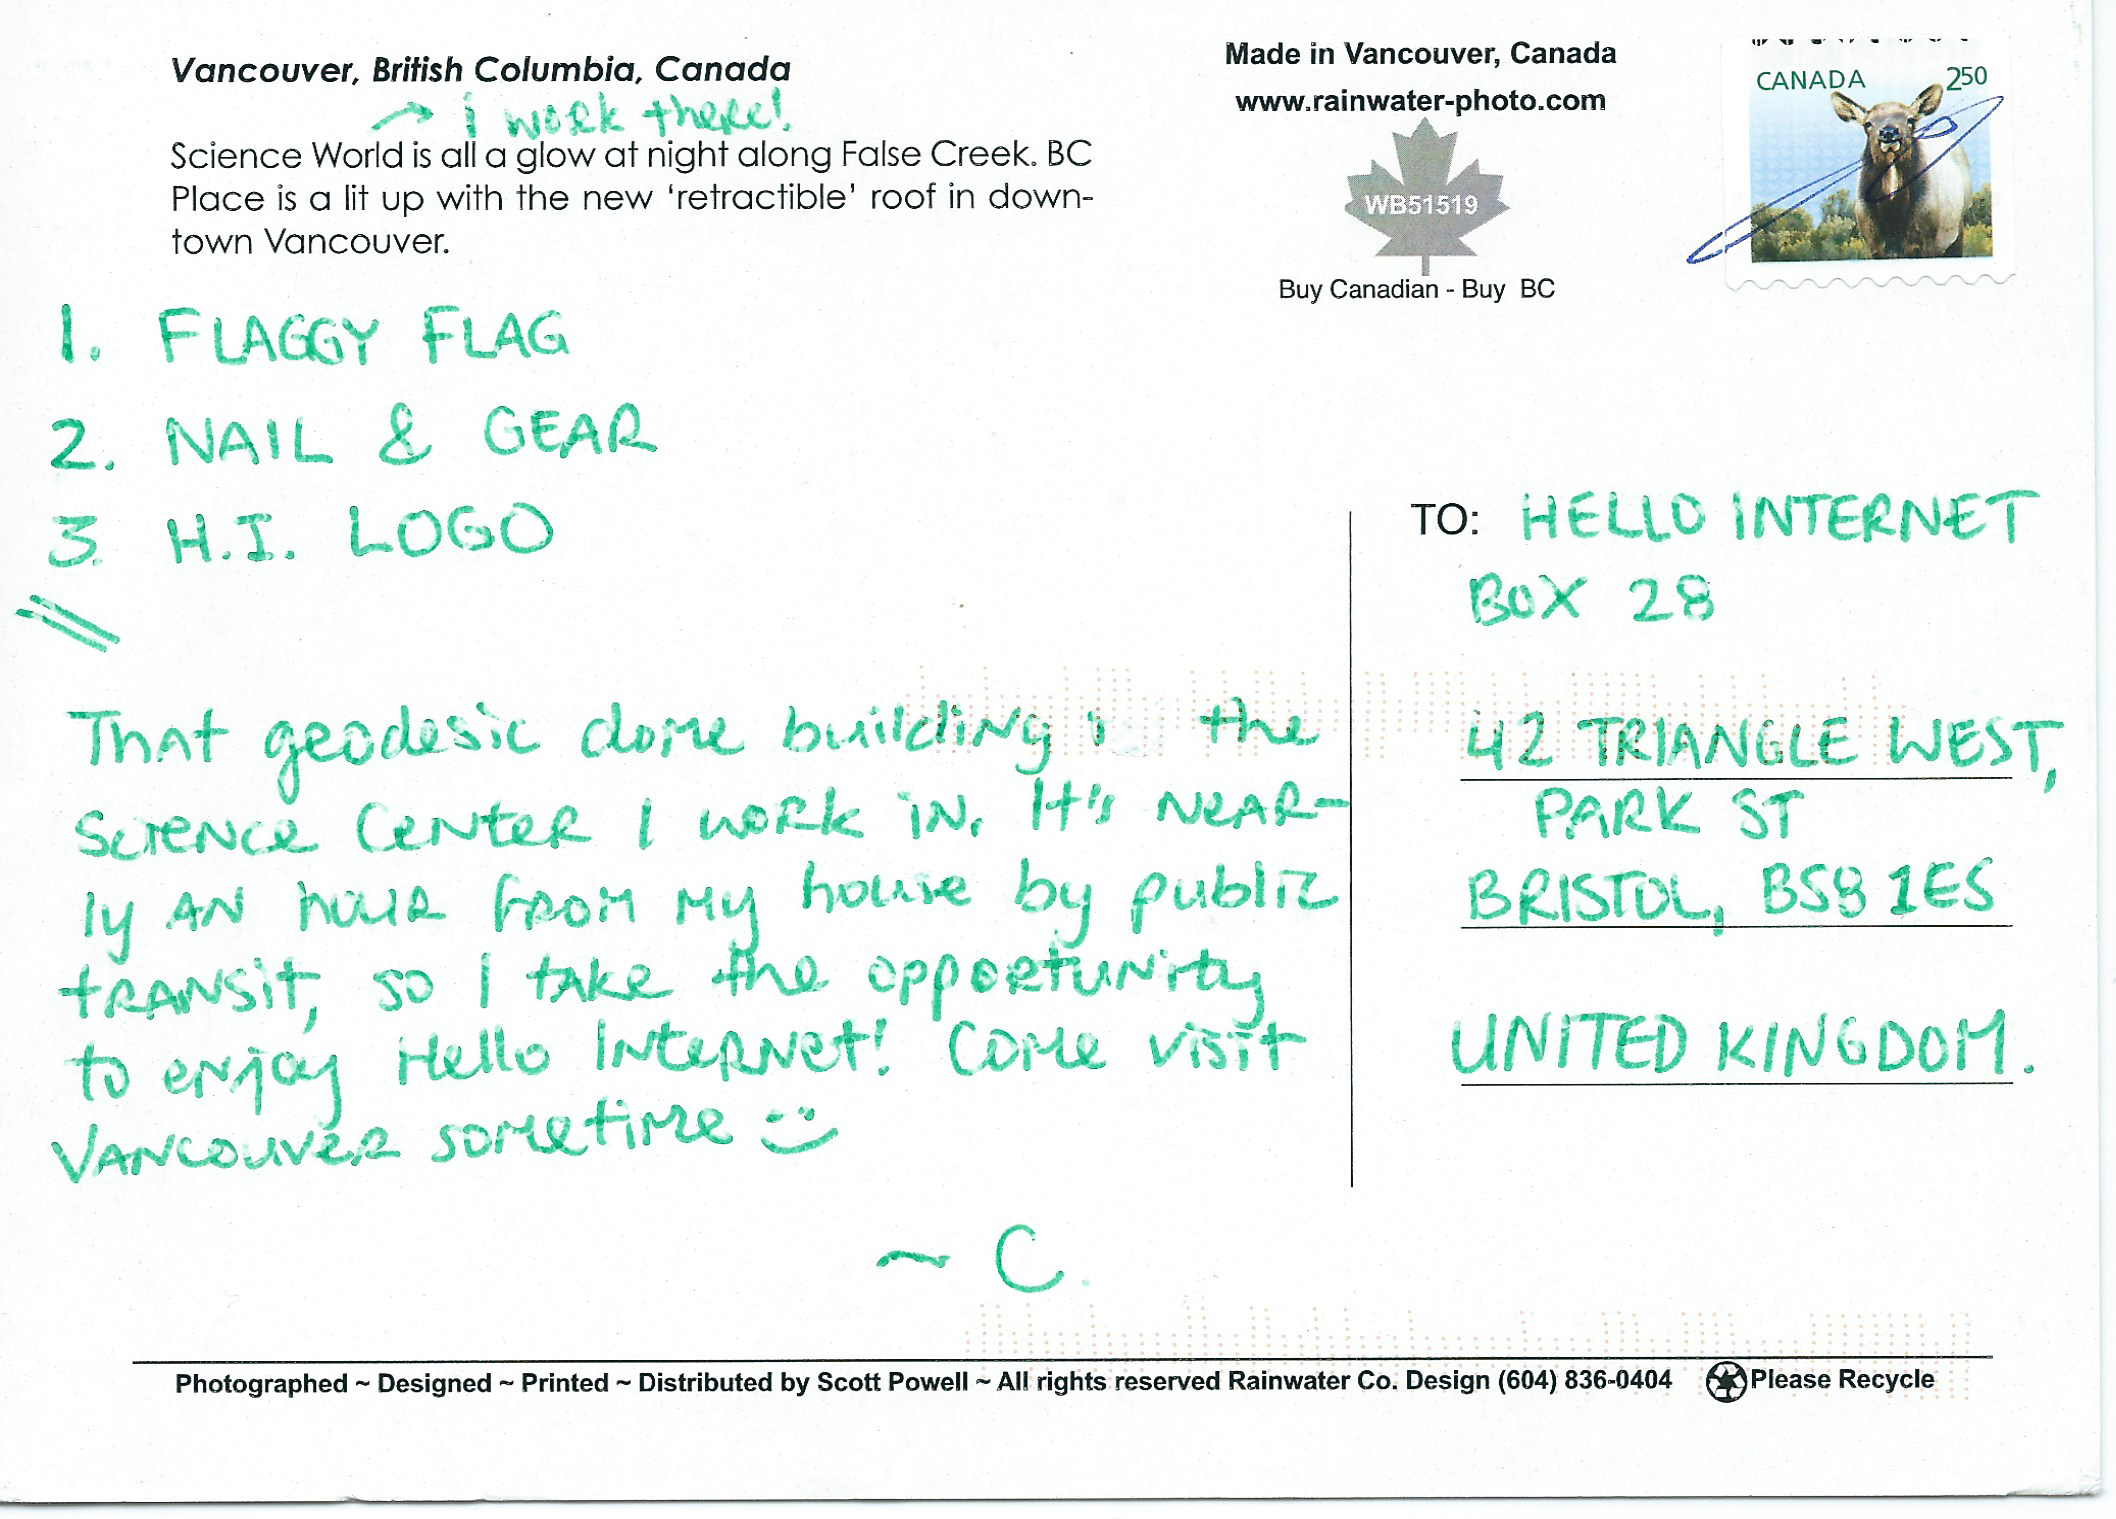 Vancouver, British Columbia, Canada
i work there!
Science World is all a glow at night along False Creek. BC
Place is a lit up with the new 'retractible' roof in down-
town Vancouver.
Made in Vancouver, Canada
www.rainwater-photo.com
WB51519
Buy Canadian - Buy BC
CANADA 250
1. FLAGGY FLAG
2. NAIL & GEAR
3. H.I. LOGO
That geodesic dome building the
science center I work in. It's near-
ly an hour from my house by public
transit, so I take the opportunity
to enjoy Hello Internet! Come visit
Vancouver sometime
~ C.
TO: HELLO INTERNET
BOX 28
42 TRIANGLE WEST,
PARK ST
BRISTOL, BS8 1ES
UNITED KINGDOM.
Photographed ~ Designed ~ Printed ~ Distributed by Scott Powell ~ All rights reserved Rainwater Co. Design (604) 836-0404 Please Recycle